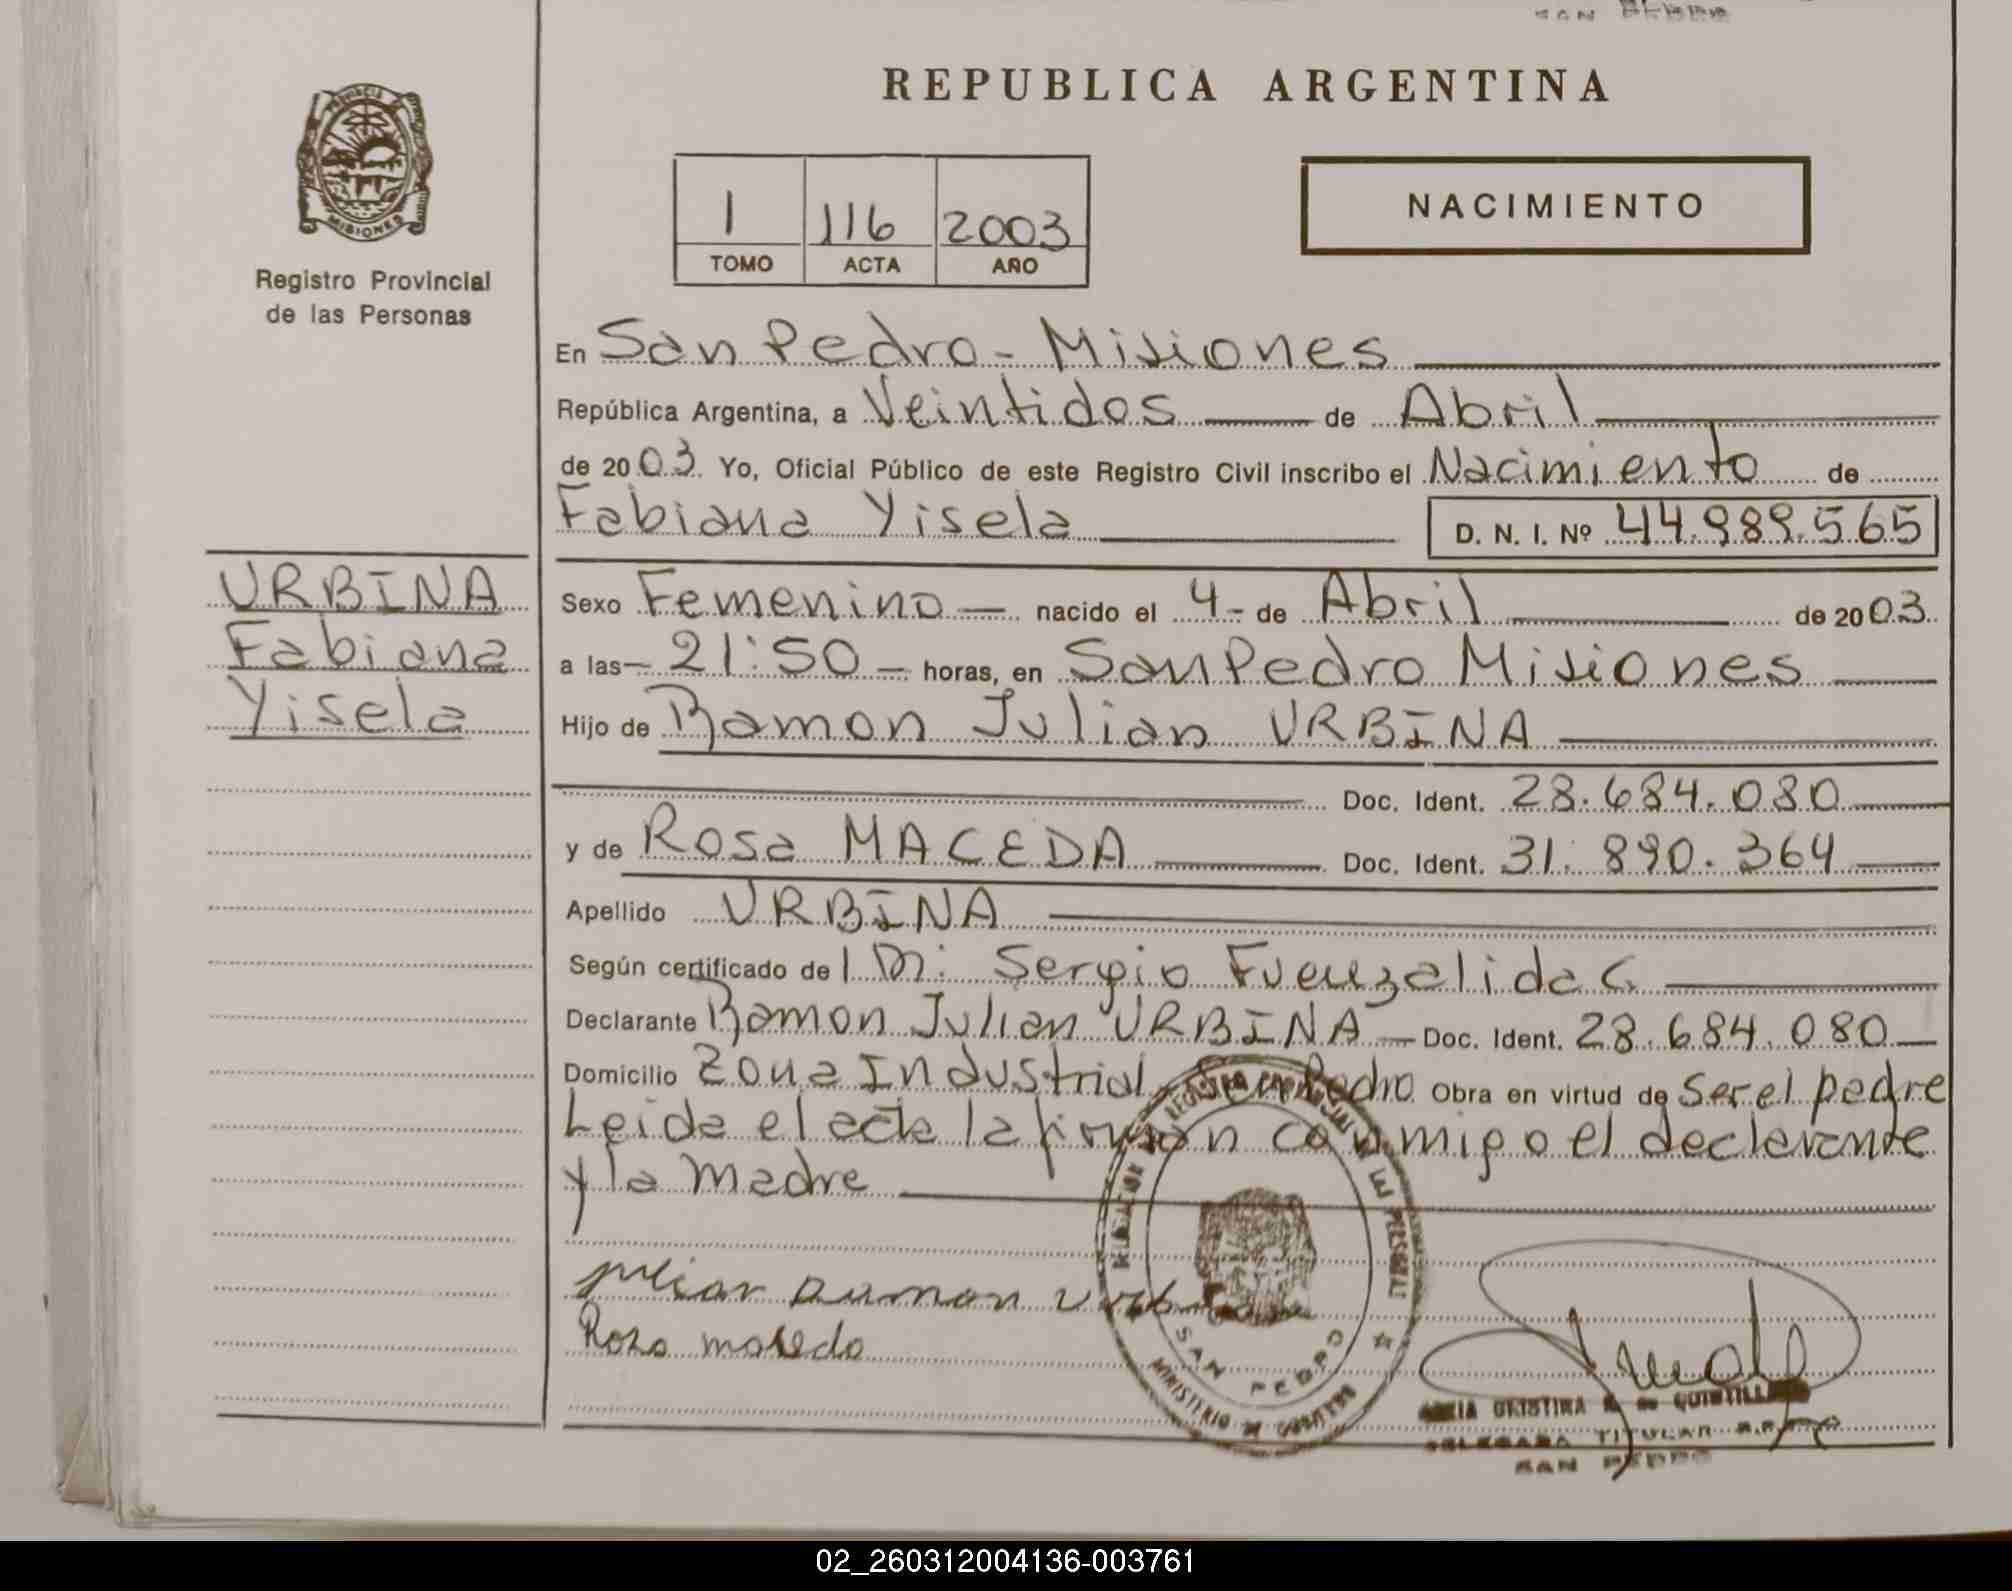 SAN PEDRO
REPUBLICA ARGENTINA
PROVINCIA DE
MISIONES
Registro Provincial
de las Personas
1 116 2003
TOMO ACTA AÑO
NACIMIENTO
En San Pedro - Misiones
República Argentina, a Veintidos de Abril
de 2003. Yo, Oficial Público de este Registro Civil inscribo el Nacimiento de
Fabiana Yisela D. N. I. Nº 44.989.565
URBINA
Fabiana
Yisela
Sexo Femenino nacido el 4 - de Abril de 2003.
a las - 21:50 - horas, en San Pedro Misiones
Hijo de Ramon Julian URBINA
Doc. Ident. 28.684.080
y de Rosa MACEDA Doc. Ident. 31.890.364
Apellido URBINA
Según certificado de Sergio Fuenzalida C.
Declarante Ramon Julian URBINA - Doc. Ident. 28.684.080
Domicilio Zona Industrial - San Pedro Obra en virtud de Ser el padre
Leida el acta la firman conmigo el declarante
y la Madre
SAN PEDRO
MINISTERIO DE GOBIERNO
CRISTINA
TITULAR
SAN PEDRO
02_260312004136-003761